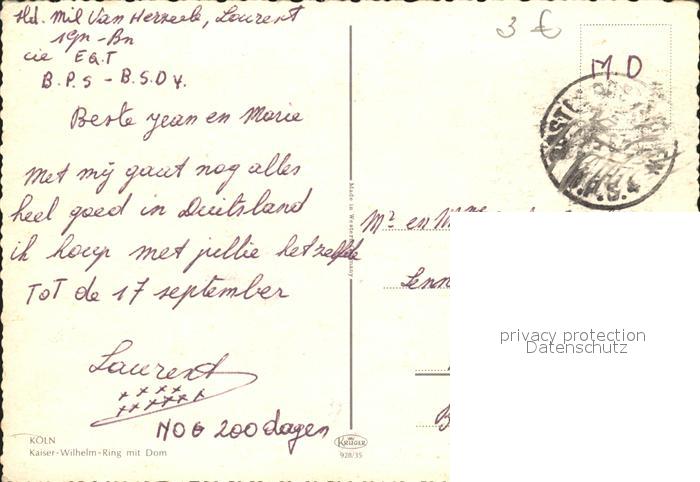 Md. Mil Van Herzeele, Laurent
1gn - Bn
cie EGT
B.P.S - B.S.D 4.
3 €
M.D
B.P.S. 4
Beste jean en Maria
met mÿ gaat nog alles
heel goed in Duitsland
ik hoop met jullie hetzelfde
TOT de 17 september
Laurent
xxxx
xxxxxx
NOG 200 dagen
Made in Western Germany
Mr en Mme
privacy protection
Datenschutz
KÖLN
Kaiser-Wilhelm-Ring mit Dom
KRÜGER
928/35